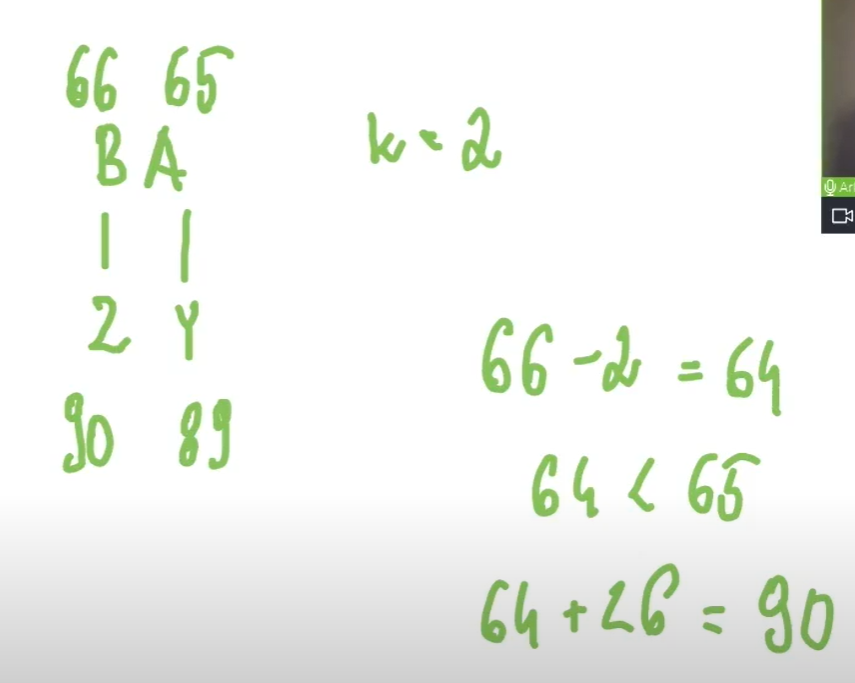 66 65
B A
k = 2
| |
Z Y
90 89
66 - 2 = 64
64 < 65
64 + 26 = 90
Ar